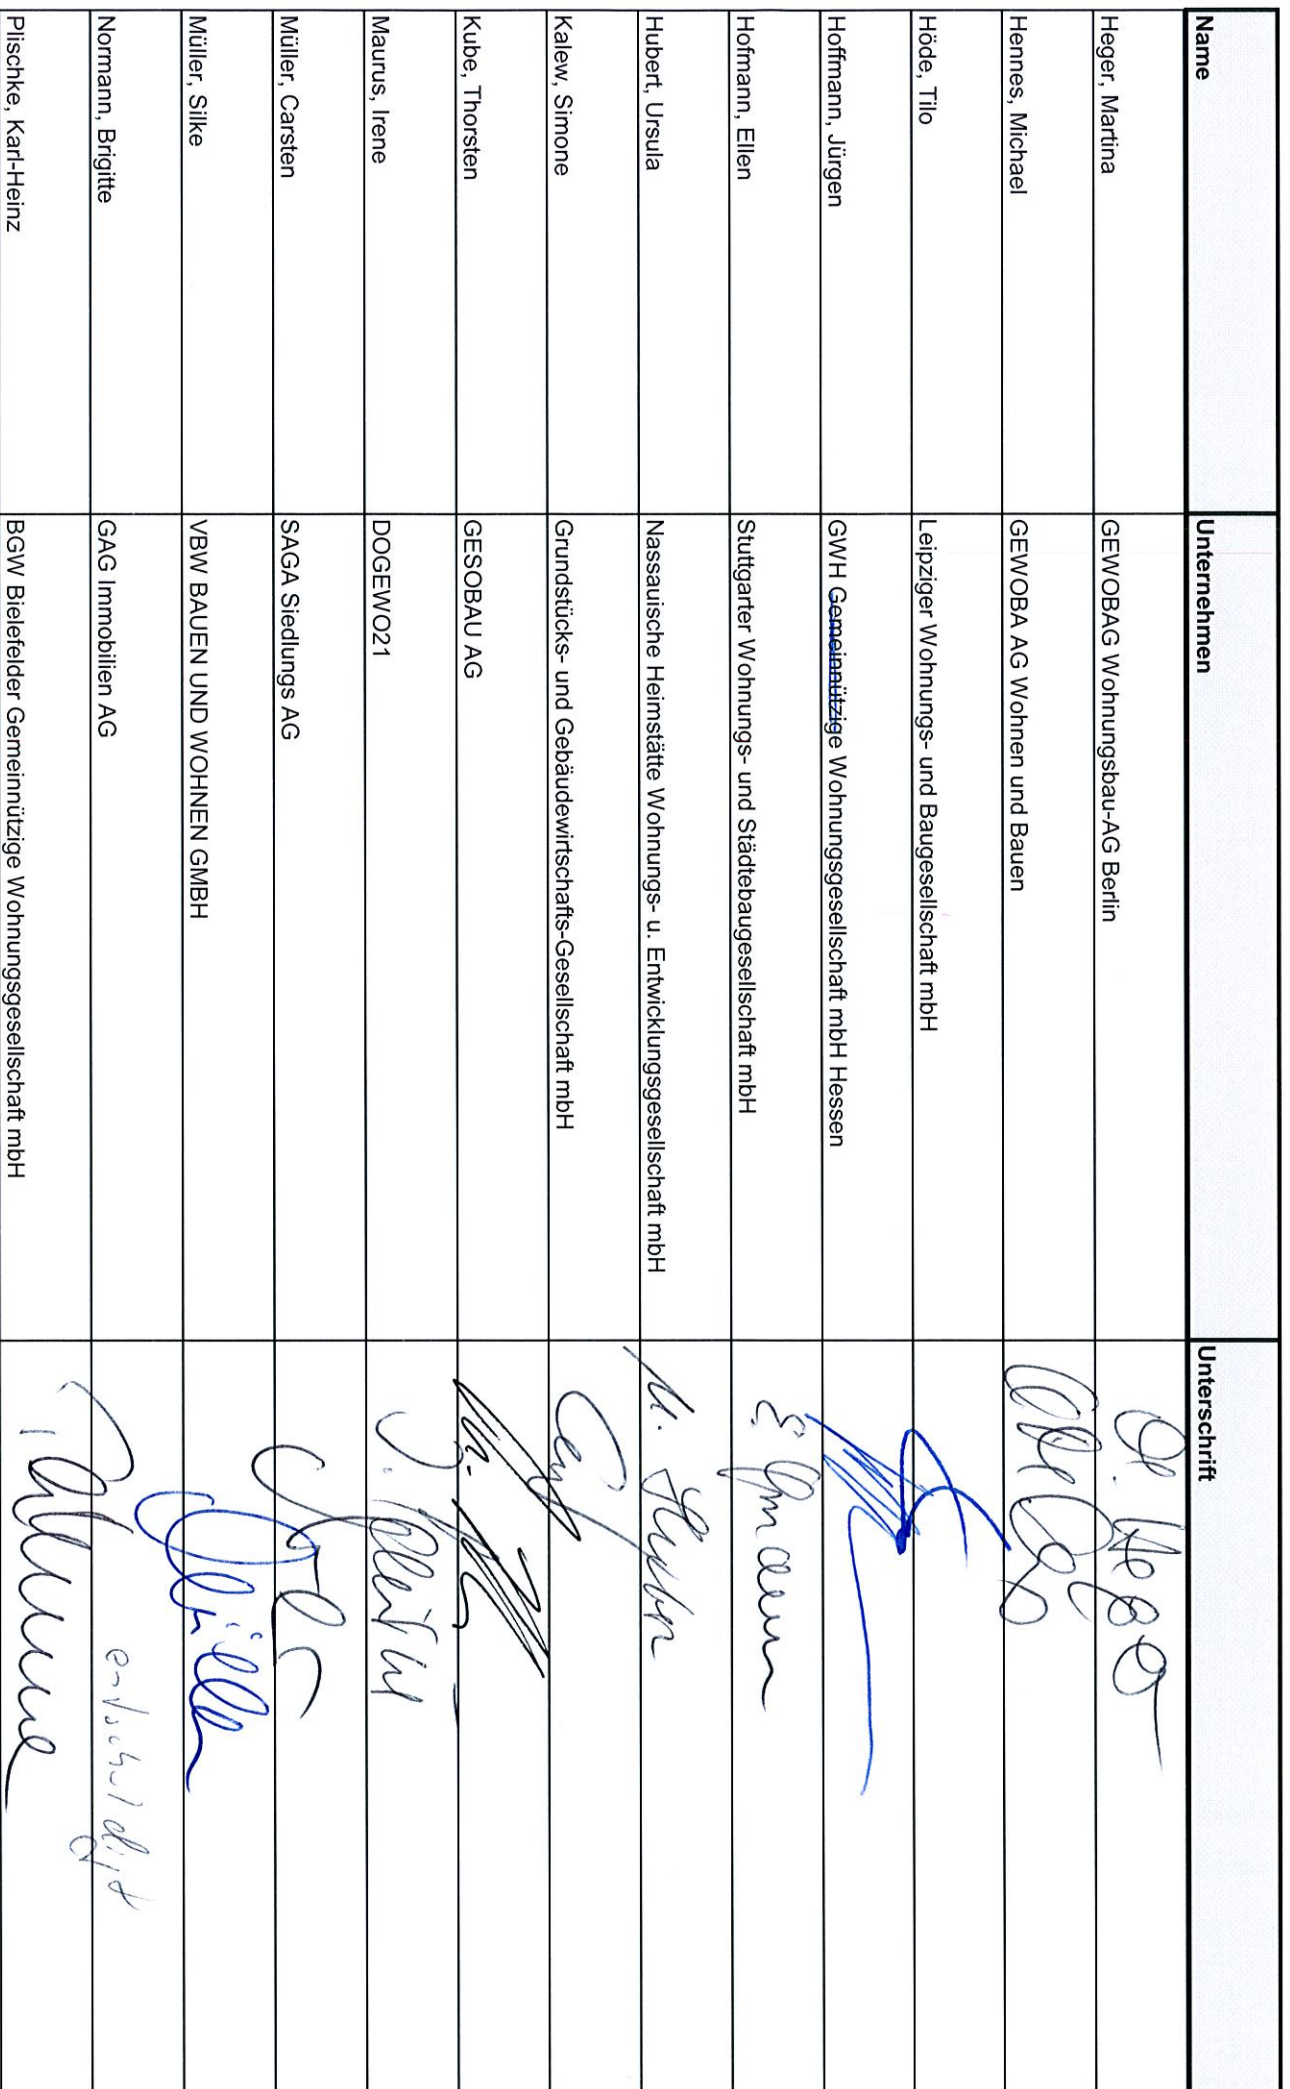 Name Unternehmen Unterschrift
Heger, Martina GEWOBAG Wohnungsbau-AG Berlin
Hennes, Michael GEWOBA AG Wohnen und Bauen
Höde, Tilo Leipziger Wohnungs- und Baugesellschaft mbH
Hoffmann, Jürgen GWH Gemeinnützige Wohnungsgesellschaft mbH Hessen
Hofmann, Ellen Stuttgarter Wohnungs- und Städtebaugesellschaft mbH
Hubert, Ursula Nassauische Heimstätte Wohnungs- u. Entwicklungsgesellschaft mbH
Kalew, Simone Grundstücks- und Gebäudewirtschafts-Gesellschaft mbH
Kube, Thorsten GESOBAU AG
Maurus, Irene DOGEWO21
Müller, Carsten SAGA Siedlungs AG
Müller, Silke VBW BAUEN UND WOHNEN GMBH Müller
Normann, Brigitte GAG Immobilien AG entschuldigt
Plischke, Karl-Heinz BGW Bielefelder Gemeinnützige Wohnungsgesellschaft mbH